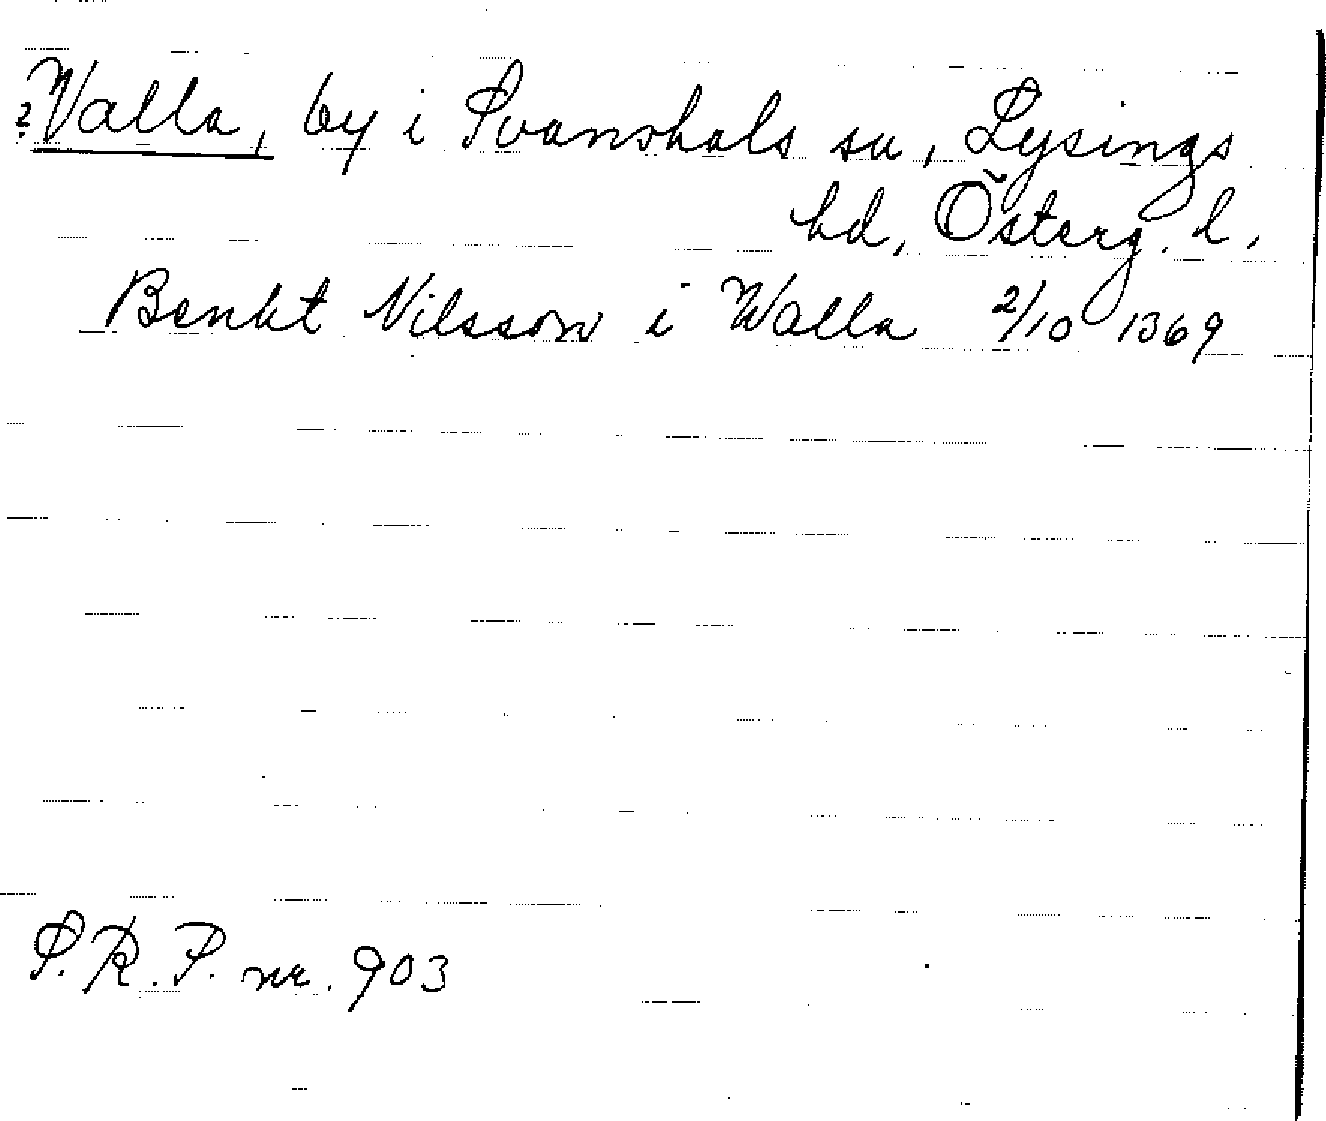 ?Valla, by i Svanshals sn, Lysings
hd, Österg. l.
Benkt Nilsson i Walla 2/10 1369
S.R.P. nr. 903